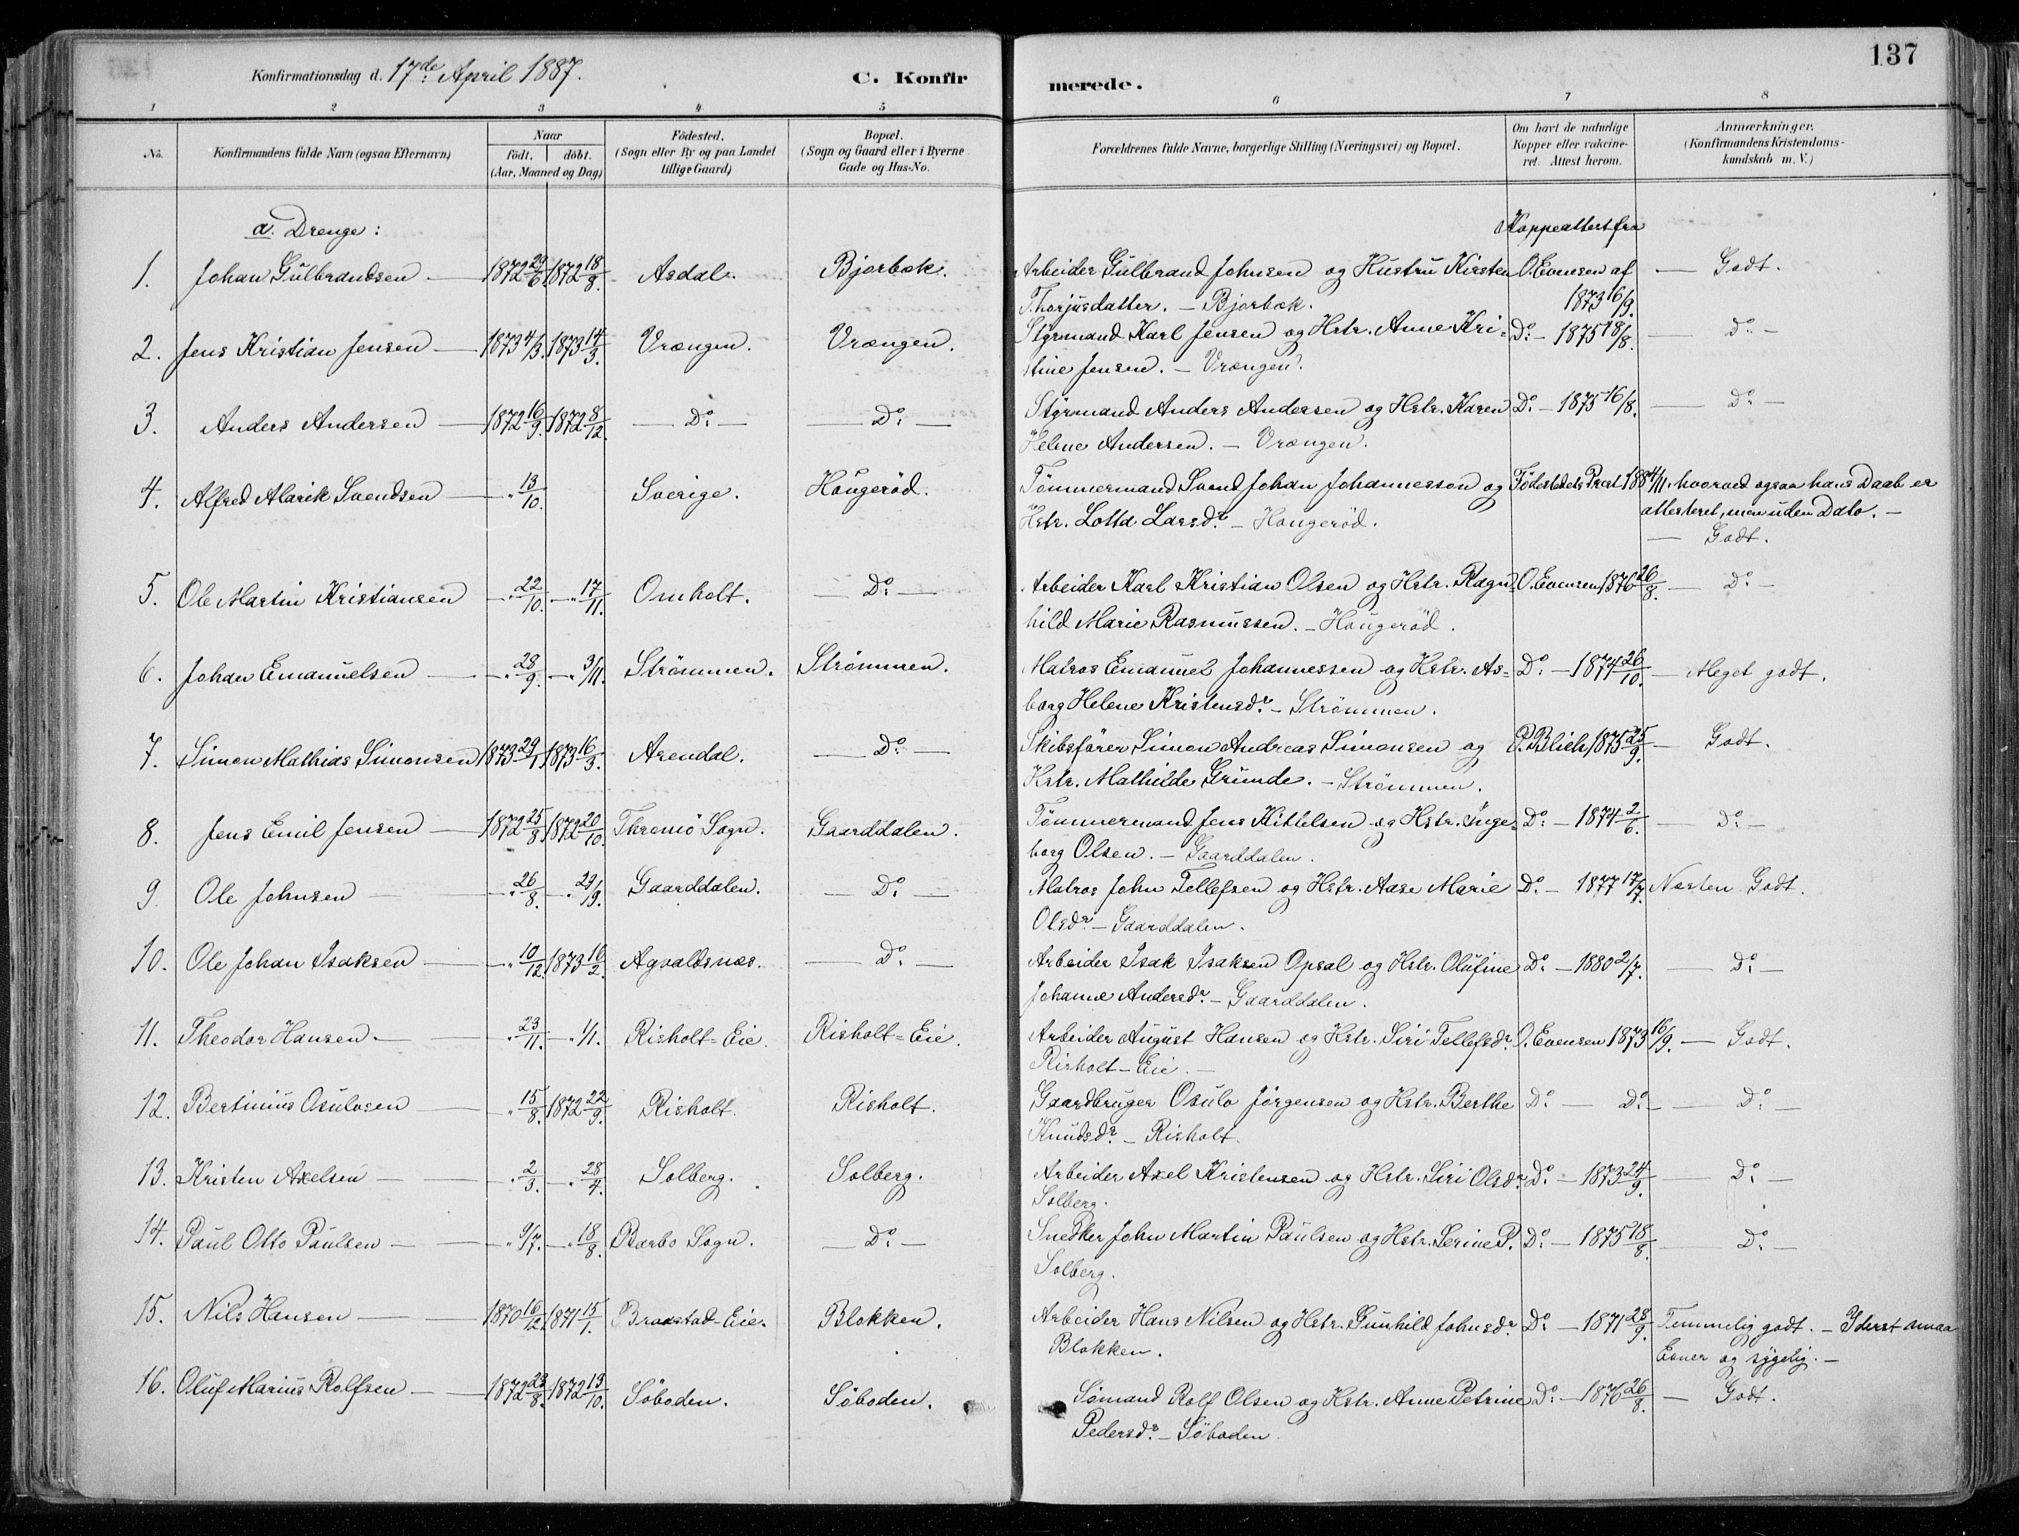 137
Konfirmationsdag d. 17de April 1887.
C. Konfir merede.
1 2 3 4 5 6 7 8
No. Konfirmandens fulde Navn (ogsaa Efternavn) Naar födt. döbt. (Aar, Maaned og Dag) Födested. (Sogn eller By og paa Landet tillige Gaard) Bopæl. (Sogn og Gaard eller i Byerne Gade og Hus-No. Forældrenes fulde Navne, borgerlige Stilling (Næringsvei) og Bopæl. Om havt de naturlige Kopper eller vakcineret. Attest herom. Anmærkninger. (Konfirmandens Kristendomskundskab m. V.)
a. Drenge: Koppeattest fra
1. Johan Gulbrandsen — 1872 29/6. 1872 18/8. Asdal. Bjorbæk. Arbeider Gulbrand Johnsen og Hustru Kirsten O. Evensen af — Godt.
Thorjusdatter. — Bjorbæk. 1873 16/9.
2. Jens Kristian Jensen — 1873 4/3. 1873 14/3. Vrængen. Vrængen. Styrmand Karl Jensen og Hstr. Anne Kri- Do. — 1875 18/8. — Do. —
stine Jensen. — Vrængen.
3. Anders Andersen — 1872 16/9. 1872 8/12. — Do. — — Do. — Styrmand Anders Andersen og Hstr. Karen Do. — 1875 16/8. — Do. —
Helene Andersen. — Vrængen.
4. Alfred Alarik Svendsen — " 13/10. Sverige. Hougeröd. Tömmermand Svend Johan Johannesson og Födestedets Præst 188 4/11. hvorved ogsaa hans Daab er
Hstr. Lotta Larsdr. — Hougeröd. attesteret, men uden Dato. —
— Godt.
5. Ole Martin Kristiansen — " 22/10. — " 17/11. Omholt. — Do. — Arbeider Karl Kristian Olsen og Hstr. Ragn- O. Evensen 1876 26/8. — Do. —
hild Marie Rasmussen. — Hougeröd.
6. Johan Emanuelsen — — " 28/9. — " 3/11. Strömmen. Strömmen. Matros Emanuel Johannessen og Hstr. As- Do. — 1874 26/10. — Meget godt.
borg Helene Kristensdr. — Strömmen.
7. Simon Mathias Simonsen 1873 29/1. 1873 16/3. Arendal. — Do. — Skibsförer Simon Andreas Simonsen og P. Blich 1875 25/9. — Godt.
Hstr. Mathilde Grunde. — Strömmen.
8. Jens Emil Jensen — 1872 25/8. 1872 20/10. Thromö Sogn. Gaarddalen. Tömmermand Jens Kittelsen og Hstr. Inge- Do. — 1874 2/6. — Do. —
borg Olsen. — Gaarddalen.
9. Ole Johnsen — — " 26/8. — " 29/9. Gaarddalen. — Do. — Matros John Tellefsen og Hstr. Aase Marie Do. — 1877 17/7. Næsten Godt.
Olsdr. — Gaarddalen.
10. Ole Johan Isaksen — — " 10/12. 1873 16/2. Agvaldsnæs. — Do. — Arbeider Isak Isaksen Opsal og Hstr. Olufine Do. — 1880 2/7. — Do. —
Johanne Andersdr. — Gaarddalen.
11. Theodor Hansen. — " 23/11. — " 1/1. Risholt-Eie. Risholt-Eie. Arbeider August Hansen og Hstr. Siri Tellefsdr. O. Evensen 1873 16/9. — Godt.
Risholt-Eie. —
12. Bertinius Osulvsen — " 15/8. 1872 22/9. Risholt. Risholt. Gaardbruger Osulv Jörgensen og Hstr. Berthe Do. — Do. — — Do. —
Knudsdr. — Risholt.
13. Kristen Axelsen — " 2/3. — " 28/4. Solberg. Solberg. Arbeider Axel Kristensen og Hstr. Siri Olsdr. Do. — 1873 24/9. — Do. —
Solberg.
14. Paul Otto Paulsen — — " 9/7. — " 18/8. Barbo Sogn. — Do. — Snedker John Martin Paulsen og Hstr. Serine P. Do. — 1875 18/8. — Do. —
Solberg.
15. Nils Hansen — — 1870 16/12. 1871 15/1. Braastad-Eie. Blokken. Arbeider Hans Nilsen og Hstr. Gunhild Johnsdr. Do. — 1871 28/9. Temmelig godt. — Yderst smaa
Blokken. Evner og sygelig. —
16. Oluf Marius Rolfsen — — 1872 23/8. 1872 13/10. Söboden. Söboden. Sömand Rolf Olsen og Hstr. Anne Petrine Do. — 1876 26/8. — Godt.
Pedersdr. — Söboden.